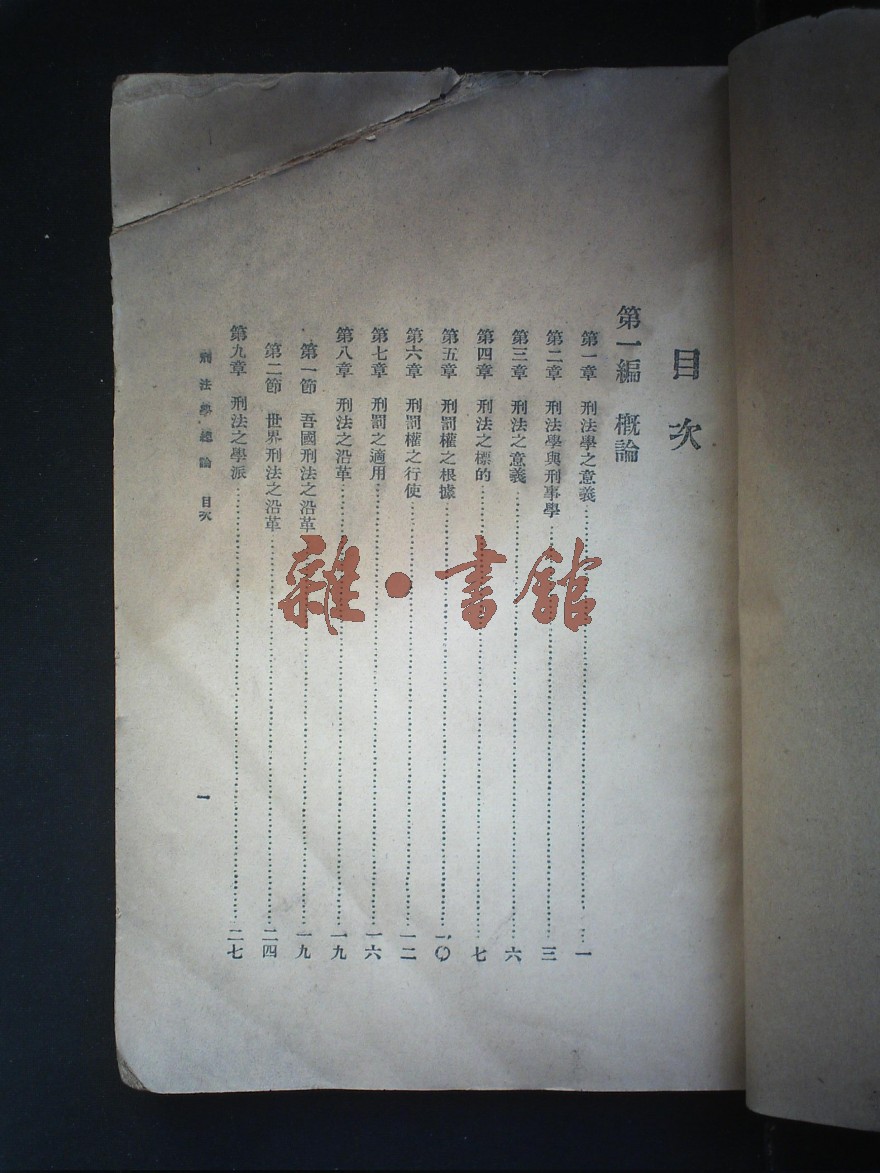 目次
第一編 概論
第一章 刑法學之意義……一
第二章 刑法學與刑事學……三
第三章 刑法之意義……六
第四章 刑法之標的……七
第五章 刑罰權之根據……一〇
第六章 刑罰權之行使……一二
第七章 刑罰之適用……一六
第八章 刑法之沿革……一九
第一節 吾國刑法之沿革……一九
第二節 世界刑法之沿革……二四
第九章 刑法之學派……二七
刑法學總論 目次
一
雜·書館